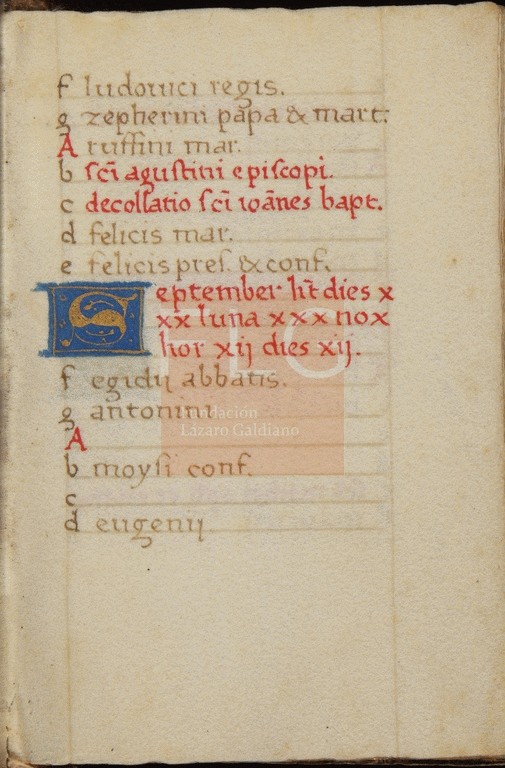 f ludouici regis.
g zepherini papa & mart.
A ruffini mar.
b sci̅ agustini episcopi.
c decollatio sci̅ ioa̅nes bapt.
d felicis mar.
e felicis pres. & conf.
September ht̅ dies x
xx luna xxx nox
hor xij dies xij.
f egidij abbatis.
g antonini
A
b moysi conf.
c
d eugenij
FLG
Fundación
Lázaro Galdiano